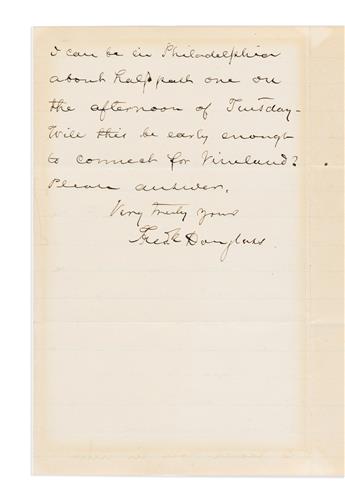 I can be in Philadelphia
about half past one on
the afternoon of Tuesday -
Will this be early enough
to connect for Vineland?
Please answer.
Very truly yours
Fredk Douglass